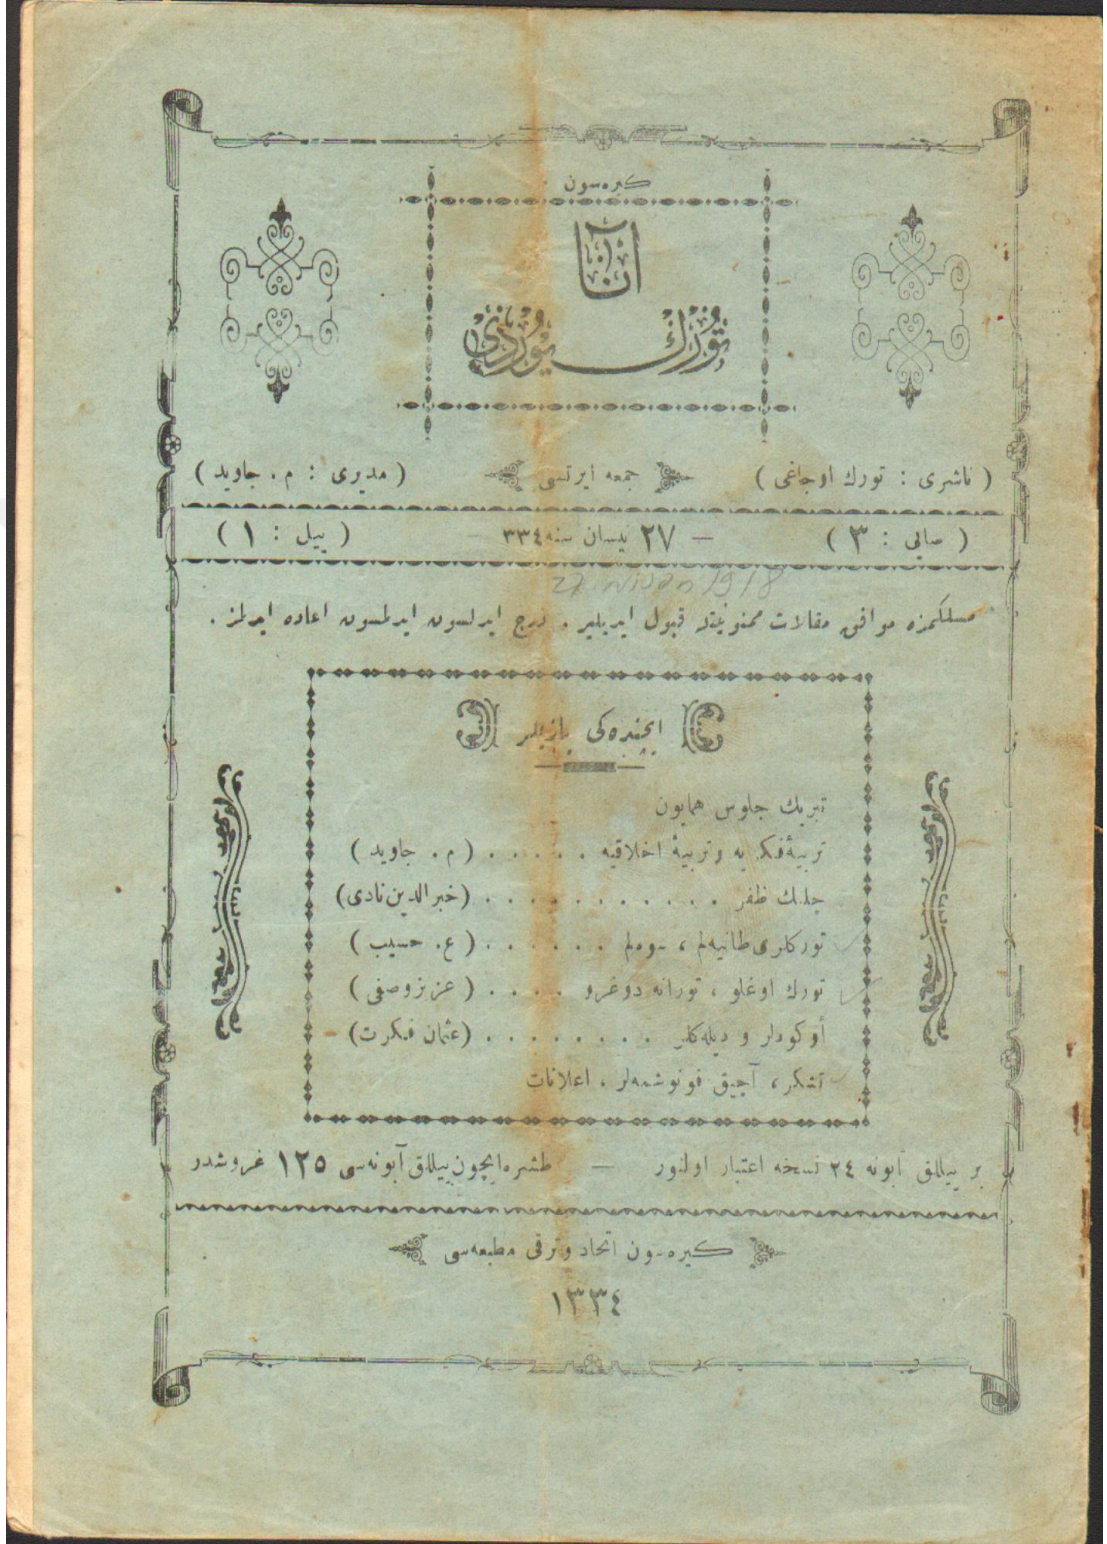 كیره‌سون
آنا
تورك یوردی
( ناشری : تورك اوجاغی ) جمعه ایرتسی ( مدیری : م . جاوید )
( صایی : ٣ ) — ٢٧ نیسان سنه ٣٣٤ ( ییل : ١ )
27 Nisan 1918
مسلكمزه موافق مقالات ممنونیتله قبول ایدیلیر . درج ایدلسون ایدلمسون اعاده ایدلمز .
ایچنده‌كی یازیلر
تبریك جلوس همایون
تربیهٔ فكریه و تربیهٔ اخلاقیه . . . . . ( م . جاوید )
ظفر . . . . . . . . . . . (خیرالدین نادی)
توركلری طانیه‌لم ، سوه‌لم . . . . . . ( ع . حسیب )
تورك اوغلو ، تورانه دوغرو . . . . ( عزیز وصفی )
أوكودلر و دیله‌كلر . . . . . . . . (عثمان فیكرت)
تشكر ، آچیق قونوشمه‌لر . اعلانات
بر ییللق آبونه ٢٤ نسخه اعتبار اولنور — طشره ایچون ییللق آبونه‌سی ١٢٥ غروشدر
كیره‌سون اتحاد و ترقی مطبعه‌سی
١٣٣٤